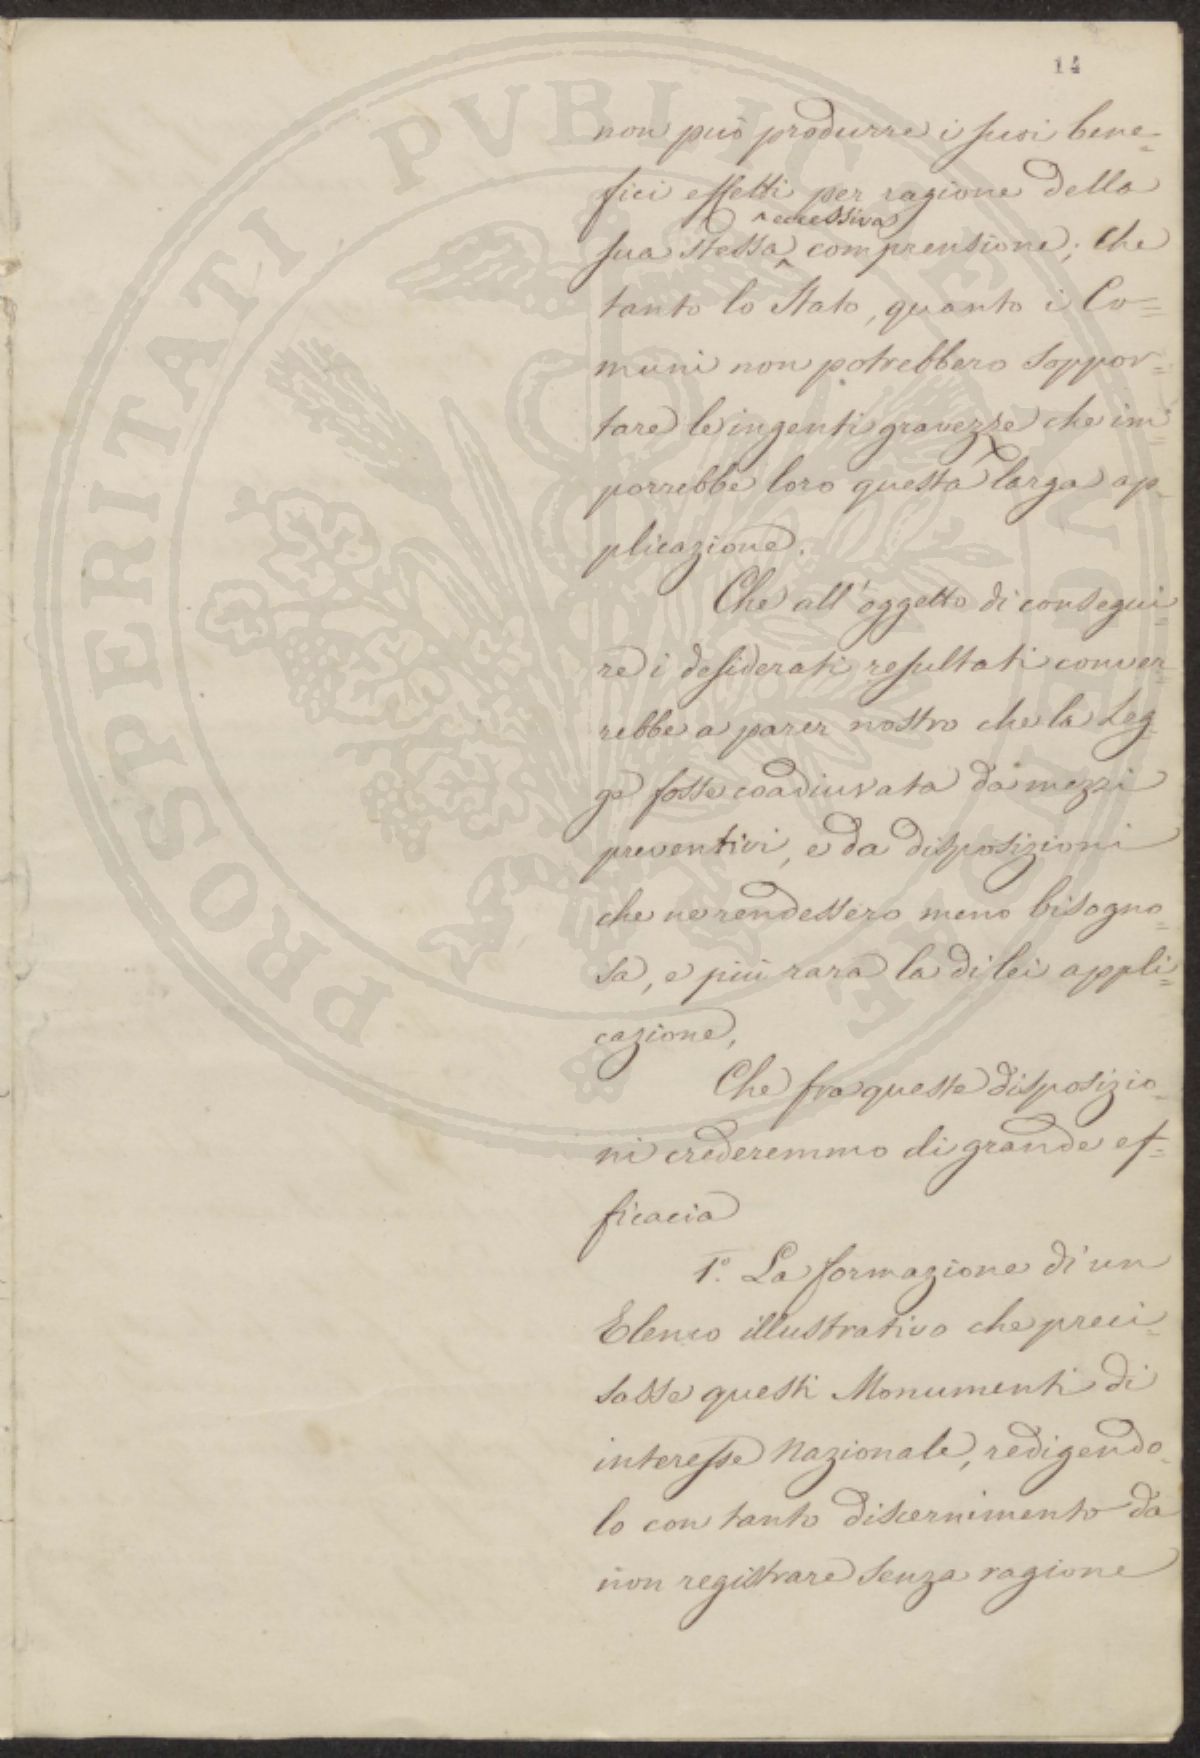 14
non può produrre i suoi bene=
fici effetti per ragione della
^ eccessiva
sua stessa ^ comprensione; che
tanto lo Stato, quanto i Co=
muni non potrebbero soppor=
tare le ingenti gravezze che im=
porrebbe loro questa larga ap=
plicazione.
Che all'oggetto di consegui=
re i desiderati resultati conver=
rebbe a parer nostro che la Leg=
ge fosse coadiuvata da mezzi
preventivi, e da disposizioni
che ne rendessero meno bisogno=
sa, e più rara la di lei appli=
cazione,
Che fra queste disposizio=
ni crederemmo di grande ef=
ficacia
1º. La formazione di un
Elenco illustrativo che preci=
sasse questi Monumenti di
interesse Nazionale, redigendo=
lo con tanto discernimento da
non registrare senza ragione
PROSPERITATI PVBLICAE AVGENDAE